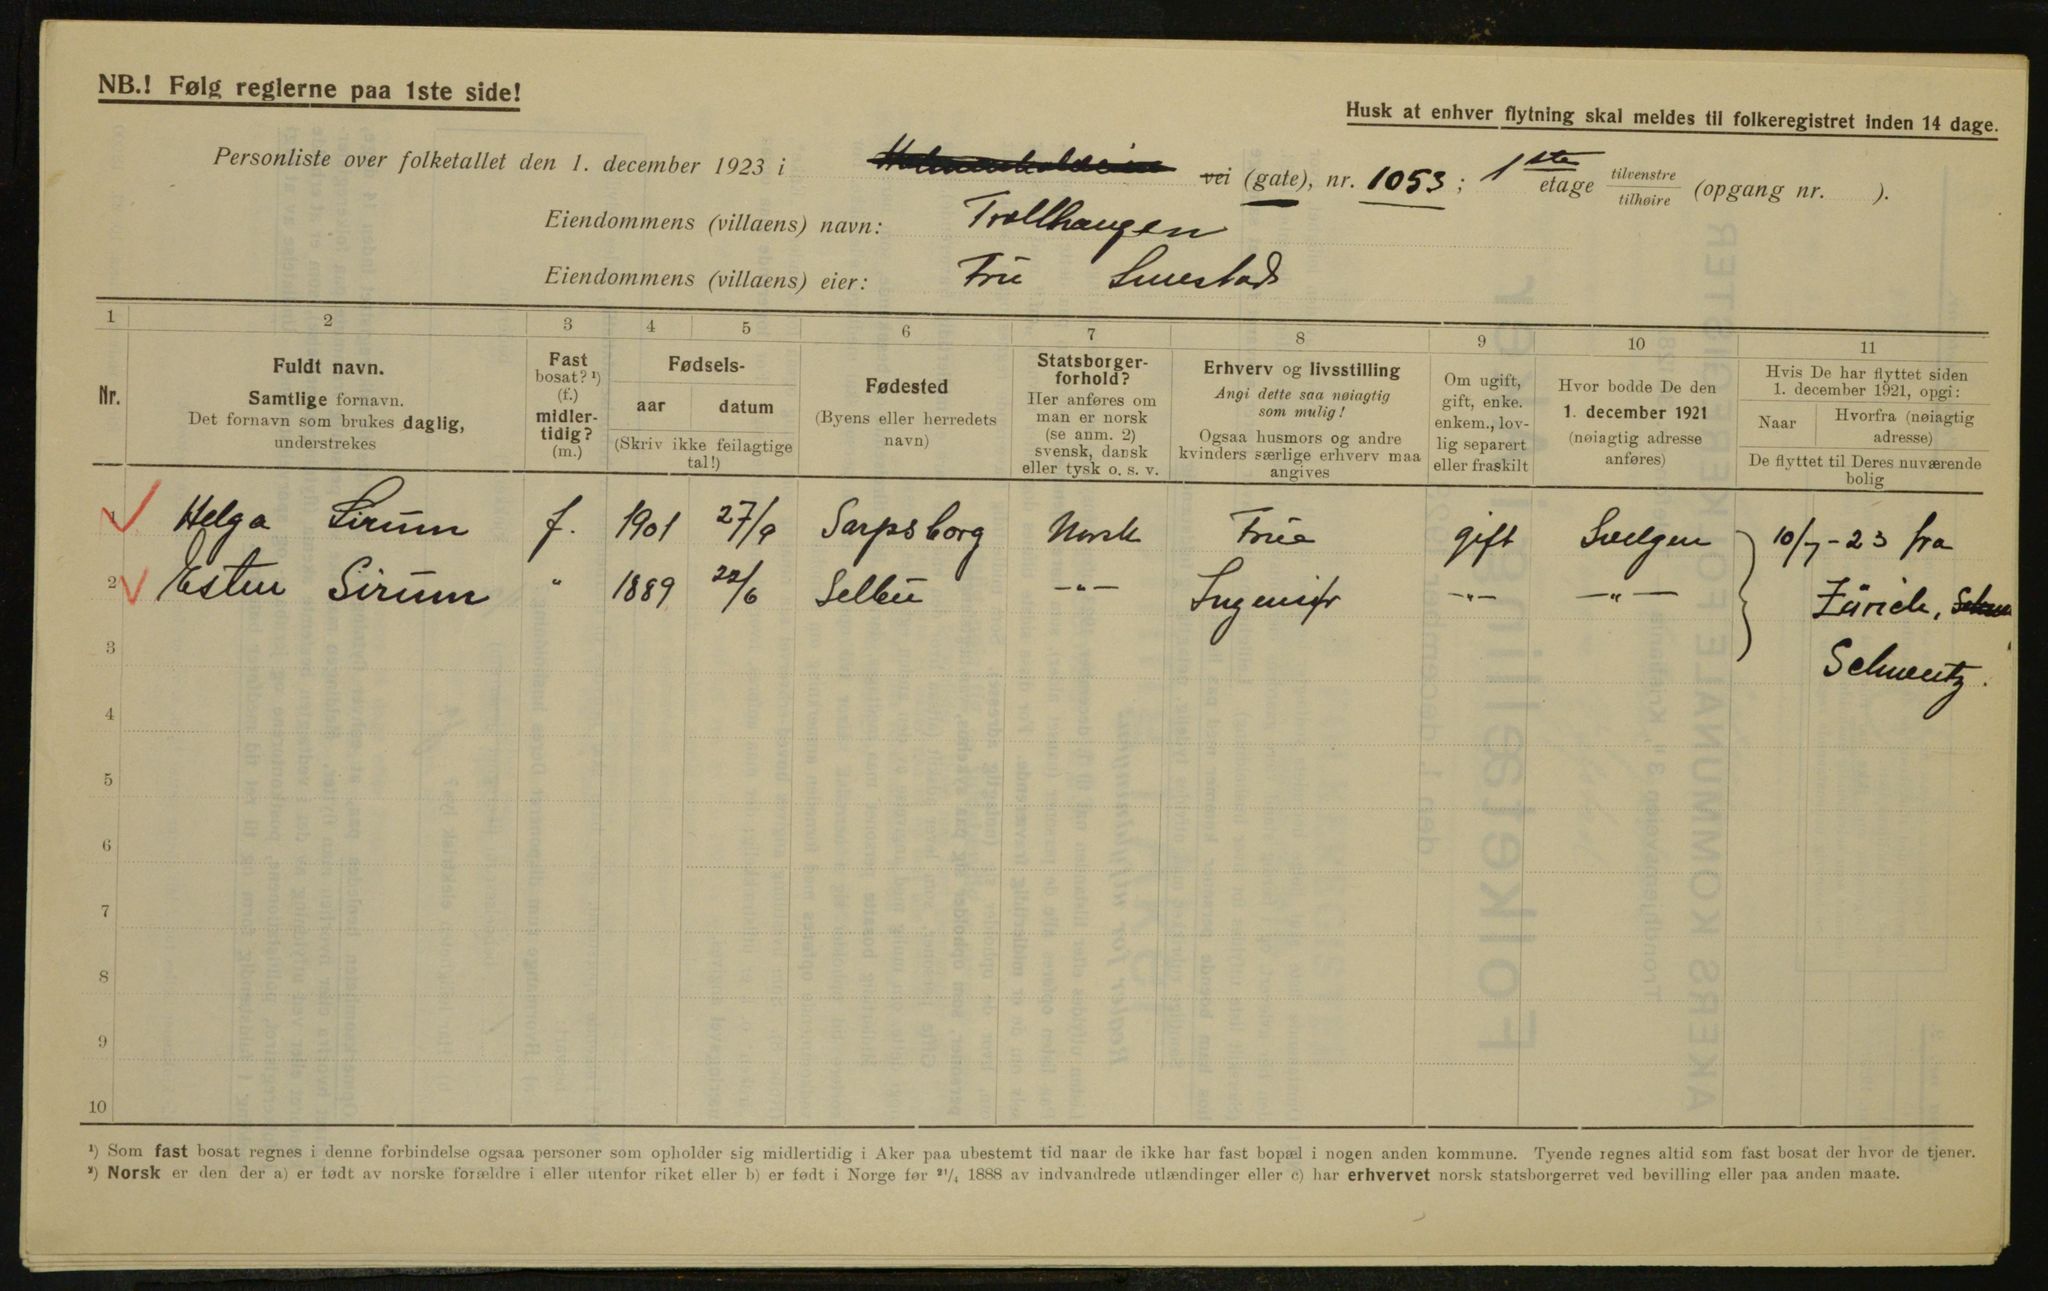 NB.! Følg reglerne paa 1ste side!
Husk at enhver flytning skal meldes til folkeregistret inden 14 dage.
Personliste over folketallet den 1. december 1923 i vei (gate), nr. 1053; 1ste etage tilvenstre tilhøire (opgang nr. ).
Eiendommens (villaens) navn: Trollhaugen
Eiendommens (villaens) eier: Frú Smestad
1 2 3 4 5 6 7 8 9 10 11
Nr.
Fuldt navn.
Samtlige fornavn.
Det fornavn som brukes daglig,
understrekes
Fast
bosat? ¹)
(f.)
midler-
tidig?
(m.)
Fødsels-
aar datum
(Skriv ikke feilagtige
tal!)
Fødested
(Byens eller herredets
navn)
Statsborger-
forhold?
Her anføres om
man er norsk
(se anm. 2)
svensk, dansk
eller tysk o. s. v.
Erhverv og livsstilling
Angi dette saa nøiagtig
som mulig!
Ogsaa husmors og andre
kvinders særlige erhverv maa
angives
Om ugift,
gift, enke.
enkem., lov-
lig separert
eller fraskilt
Hvor bodde De den
1. december 1921
(nøiagtig adresse
anføres)
Hvis De har flyttet siden
1. december 1921, opgi:
Naar Hvorfra (nøiagtig
adresse)
De flyttet til Deres nuværende
bolig
1 Helga Sirum f. 1901 27/9 Sarpsborg Norsk Frue gift Svelgen 10/7-23 fra
2 Esten Sirum " 1889 22/6 Selbu -"- Ingeniør -"- -"- Zürich,
3 Schweitz.
4
5
6
7
8
9
10
¹) Som fast bosat regnes i denne forbindelse ogsaa personer som opholder sig midlertidig i Aker paa ubestemt tid naar de ikke har fast bopæl i nogen anden kommune. Tyende regnes altid som fast bosat der hvor de tjener.
²) Norsk er den der a) er født av norske forældre i eller utenfor riket eller b) er født i Norge før ²¹/₄ 1888 av indvandrede utlændinger eller c) har erhvervet norsk statsborgerret ved bevilling eller paa anden maate.